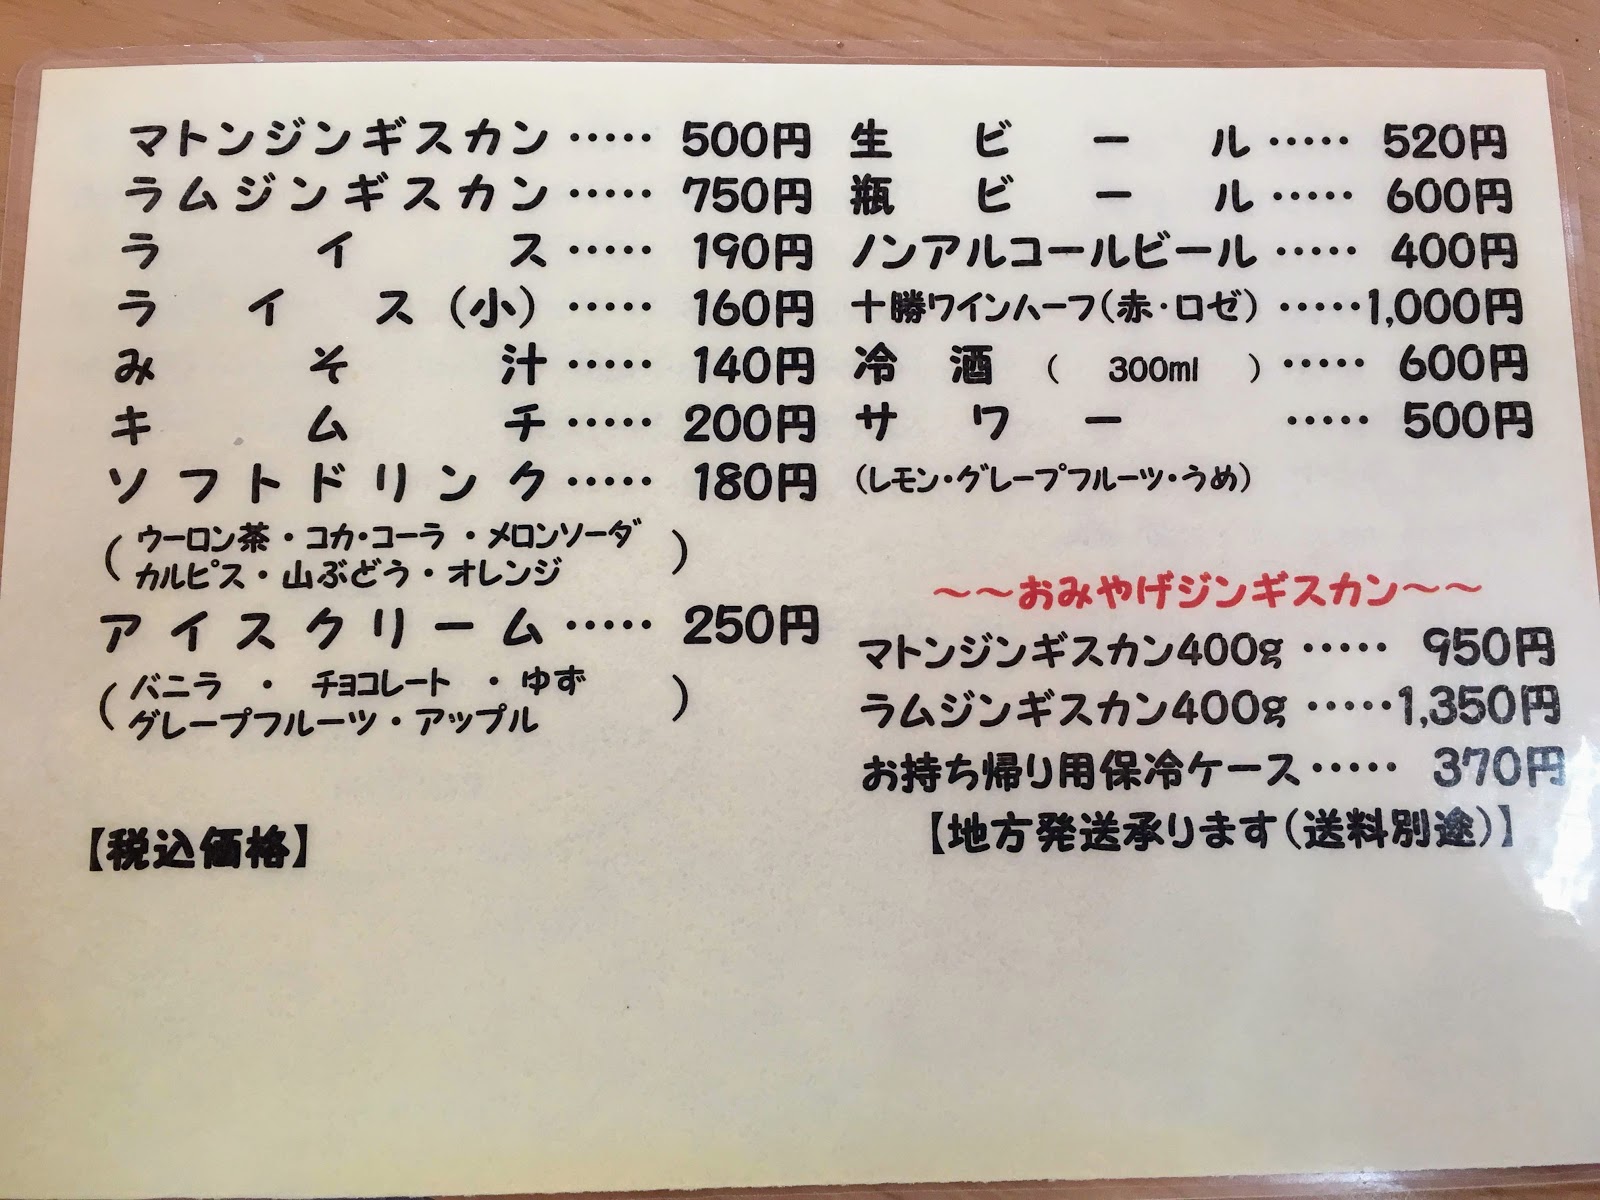 マトンジンギスカン・・・・・ 500円
ラムジンギスカン・・・・・ 750円
ライス・・・・・ 190円
ライス(小)・・・・・ 160円
みそ汁・・・・・ 140円
キムチ・・・・・ 200円
ソフトドリンク・・・・・ 180円
(ウーロン茶・コカ・コーラ・メロンソーダ
カルピス・山ぶどう・オレンジ)
アイスクリーム・・・・・ 250円
(バニラ・チョコレート・ゆず
グレープフルーツ・アップル)
【税込価格】
生ビール・・・・・ 520円
瓶ビール・・・・・ 600円
ノンアルコールビール・・・・・ 400円
十勝ワインハーフ(赤・ロゼ)・・・・・1,000円
冷酒(300ml)・・・・・ 600円
サワー・・・・・ 500円
(レモン・グレープフルーツ・うめ)
～～おみやげジンギスカン～～
マトンジンギスカン400g・・・・・ 950円
ラムジンギスカン400g・・・・・1,350円
お持ち帰り用保冷ケース・・・・・ 370円
【地方発送承ります(送料別途)】